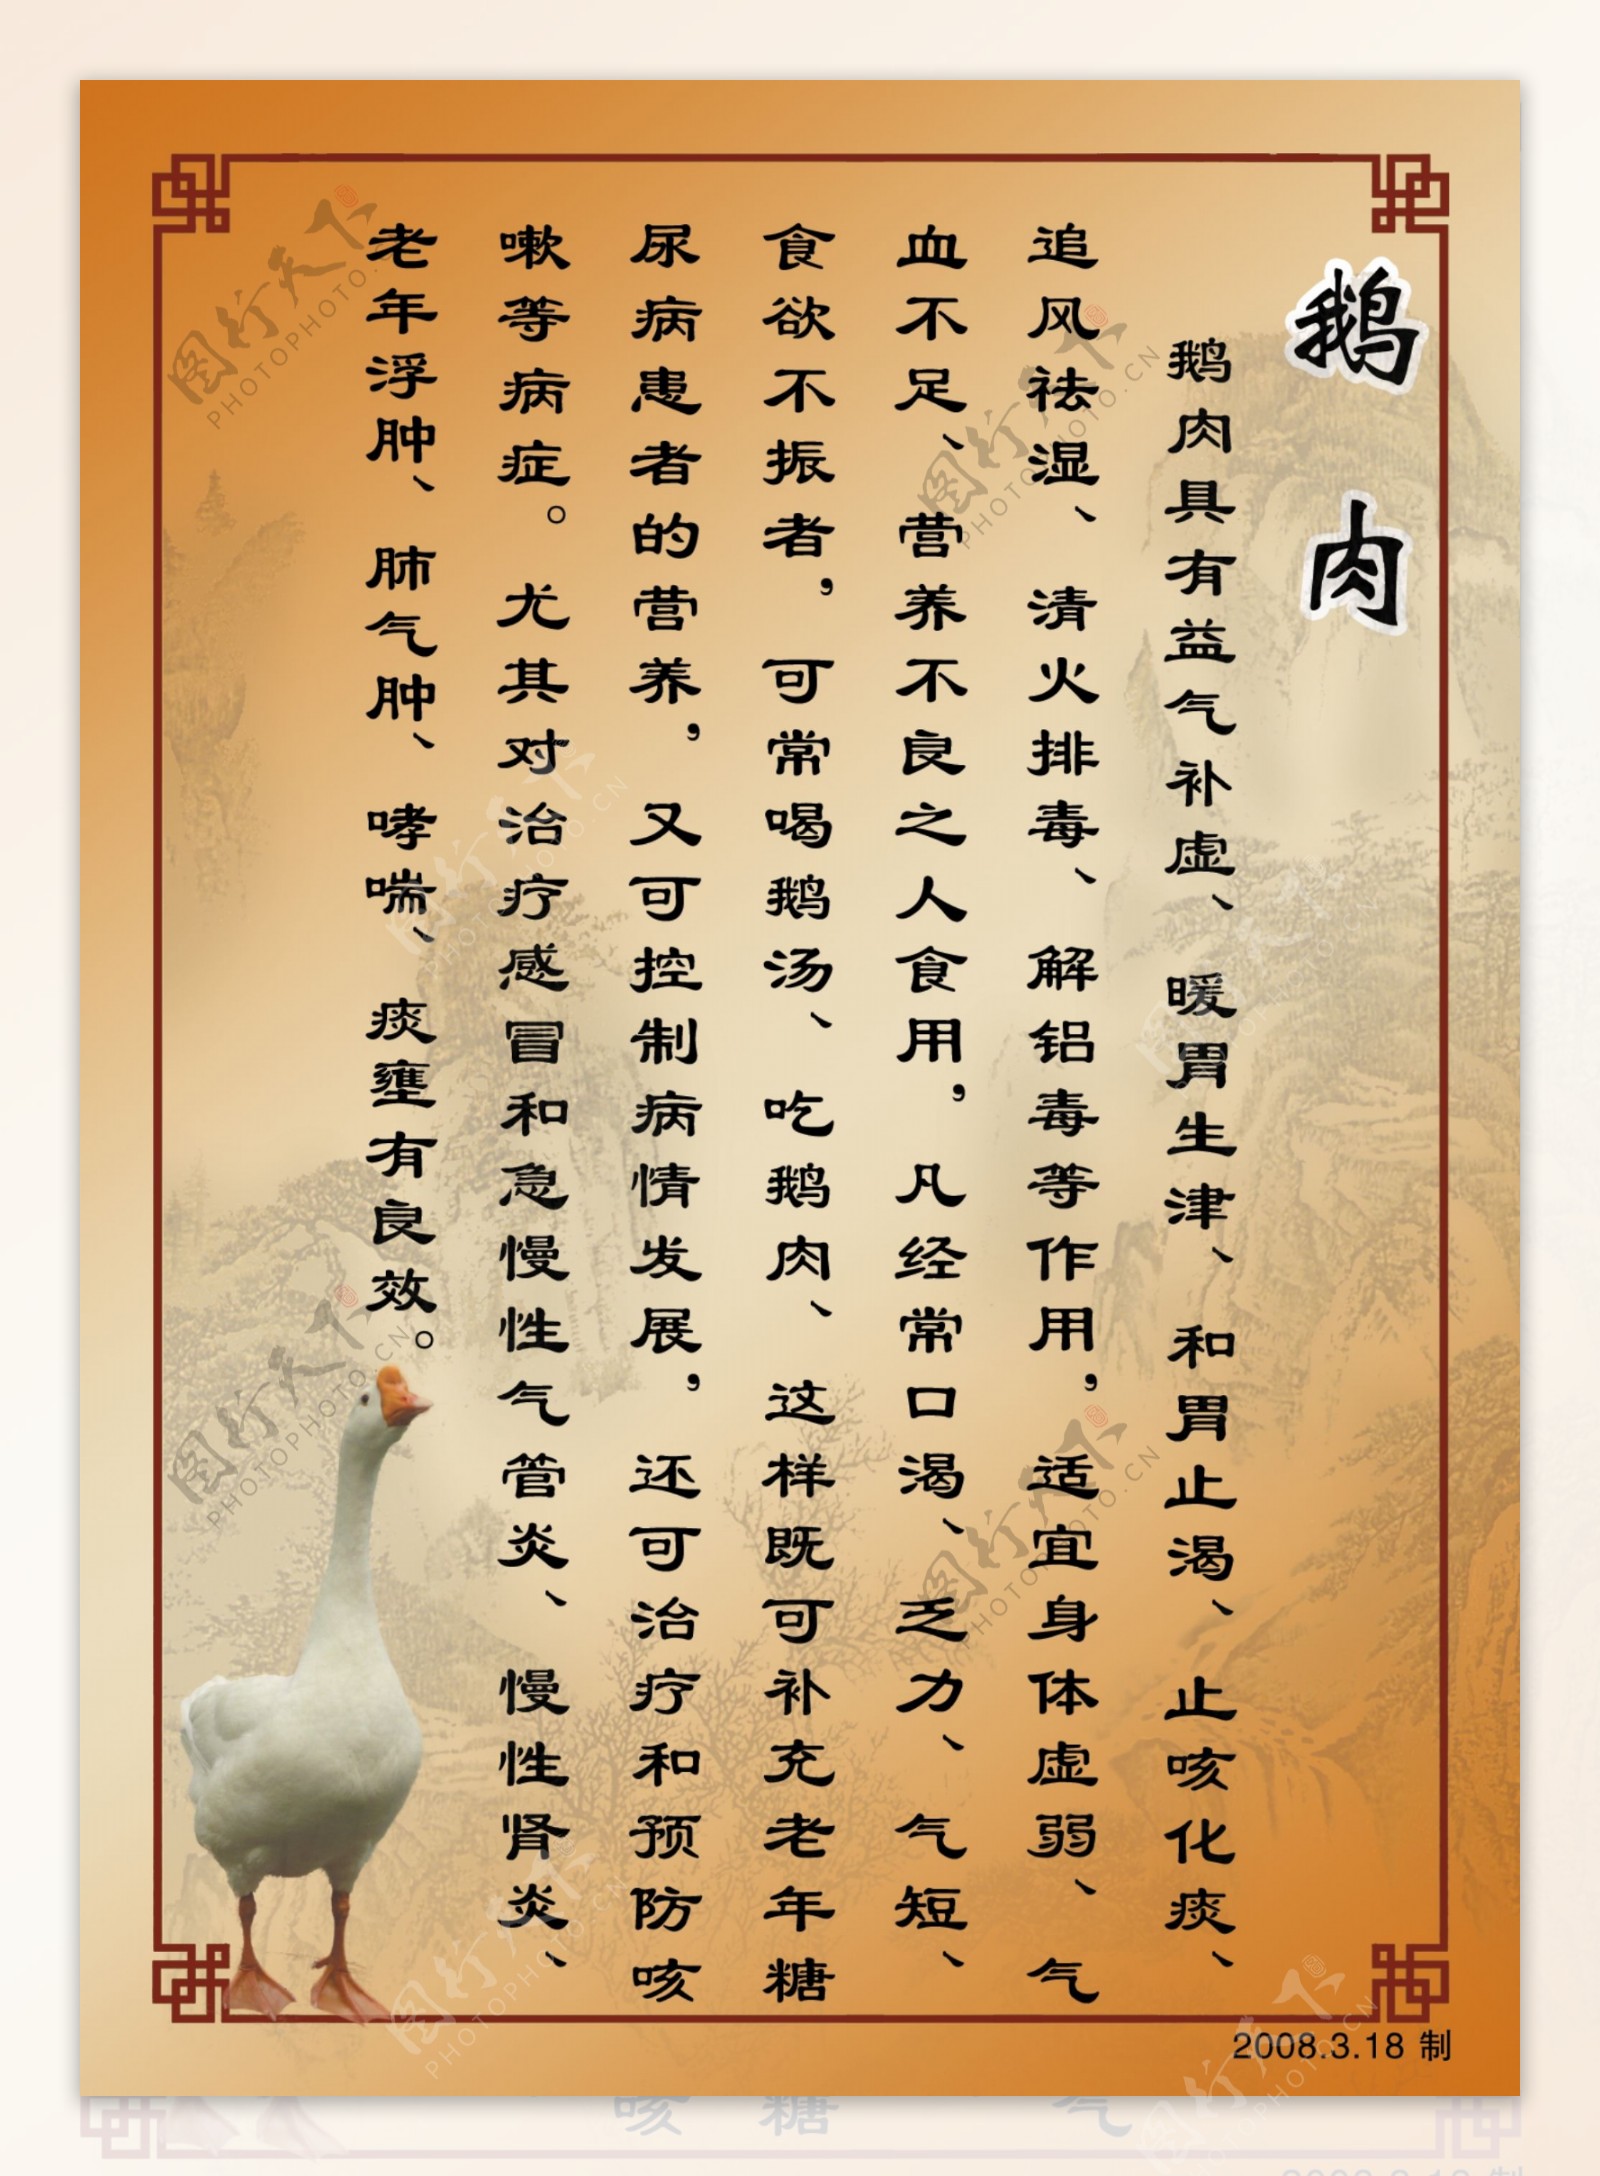 鹅肉
鹅肉具有益气补虚、暖胃生津、和胃止渴、止咳化痰、
追风祛湿、清火排毒、解铝毒等作用，适宜身体虚弱、气
血不足、营养不良之人食用，凡经常口渴、乏力、气短、
食欲不振者，可常喝鹅汤、吃鹅肉、这样既可补充老年糖
尿病患者的营养，又可控制病情发展，还可治疗和预防咳
嗽等病症。尤其对治疗感冒和急慢性气管炎、慢性肾炎、
老年浮肿、肺气肿、哮喘、痰壅有良效。
2008.3.18 制
图行天下
PHOTOPHOTO.CN